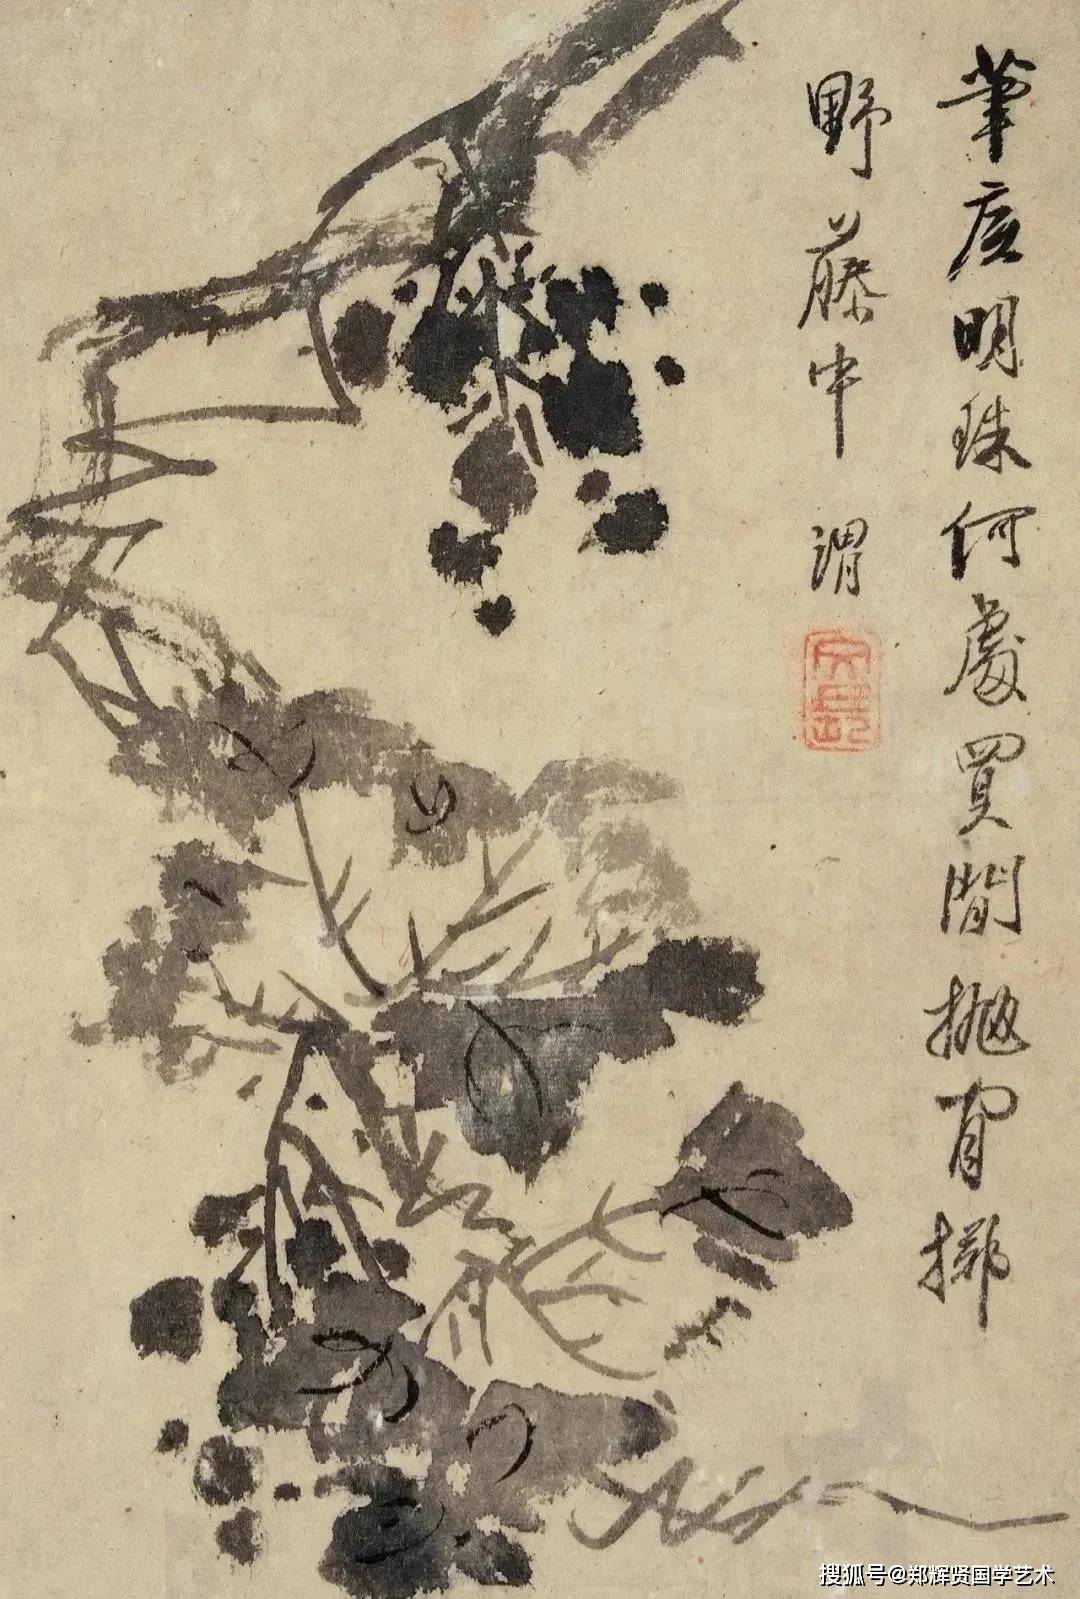 筆底明珠何處買閒拋閒擲
野藤中 渭
搜狐号@郑辉贤国学艺术